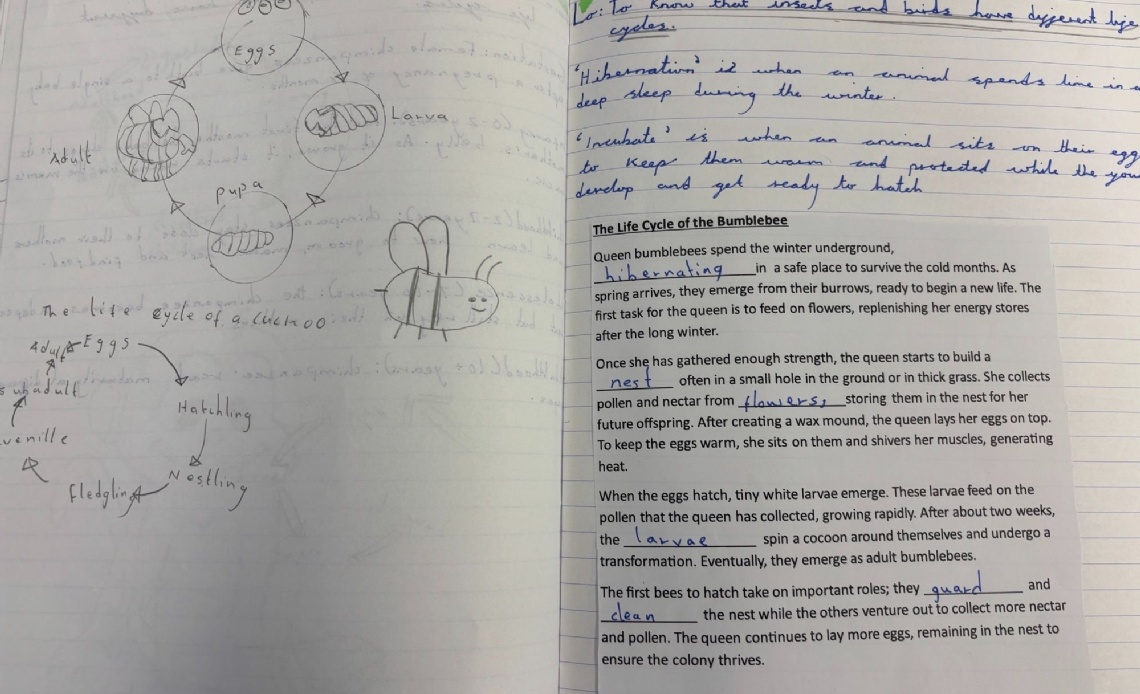 Eggs
Larva
Adult
pupa
The life cycle of a cuckoo
Adult Eggs
subadult
Hatchling
venille
Nestling
fledgling
Lo: To know that insects and birds have different life
cycles.
'Hibernation' is when an animal spends time in a
deep sleep during the winter.
'Incubate' is when an animal sits on their egg
to keep them warm and protected while the you
develop and get ready to hatch
The Life Cycle of the Bumblebee
Queen bumblebees spend the winter underground,
hibernating in a safe place to survive the cold months. As
spring arrives, they emerge from their burrows, ready to begin a new life. The
first task for the queen is to feed on flowers, replenishing her energy stores
after the long winter.
Once she has gathered enough strength, the queen starts to build a
nest often in a small hole in the ground or in thick grass. She collects
pollen and nectar from flowers, storing them in the nest for her
future offspring. After creating a wax mound, the queen lays her eggs on top.
To keep the eggs warm, she sits on them and shivers her muscles, generating
heat.
When the eggs hatch, tiny white larvae emerge. These larvae feed on the
pollen that the queen has collected, growing rapidly. After about two weeks,
the larvae spin a cocoon around themselves and undergo a
transformation. Eventually, they emerge as adult bumblebees.
The first bees to hatch take on important roles; they guard and
clean the nest while the others venture out to collect more nectar
and pollen. The queen continues to lay more eggs, remaining in the nest to
ensure the colony thrives.